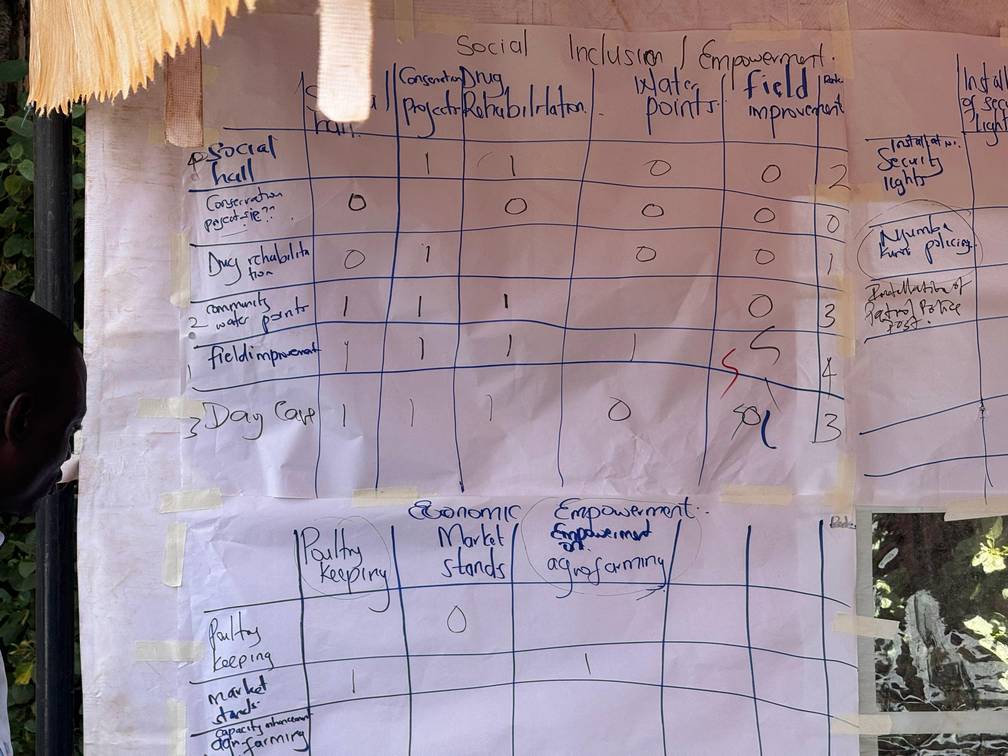 Social Inclusion / Empowerment.
hall
Conservation Projects
Drug Rehabilitation.
Water points.
field improvement
4 Social hall 1 1 0 0 2
Conservation 0 0 0 0 0
Drug rehabilitation 0 1 0 0 1
2 community water points 1 1 1 0 3
1 field improvement 1 1 1 1 S S 4
3 Day Care 1 1 1 0 3
Economic Empowerment..
Poultry keeping
Market stands
Empowerment on agrofarming
Poultry keeping 0
market stands 1 1
capacity enhancement
agro-farming
Install
of sec
light
Security lights
Nyumba Kumi policing
Installation of
Police Post.